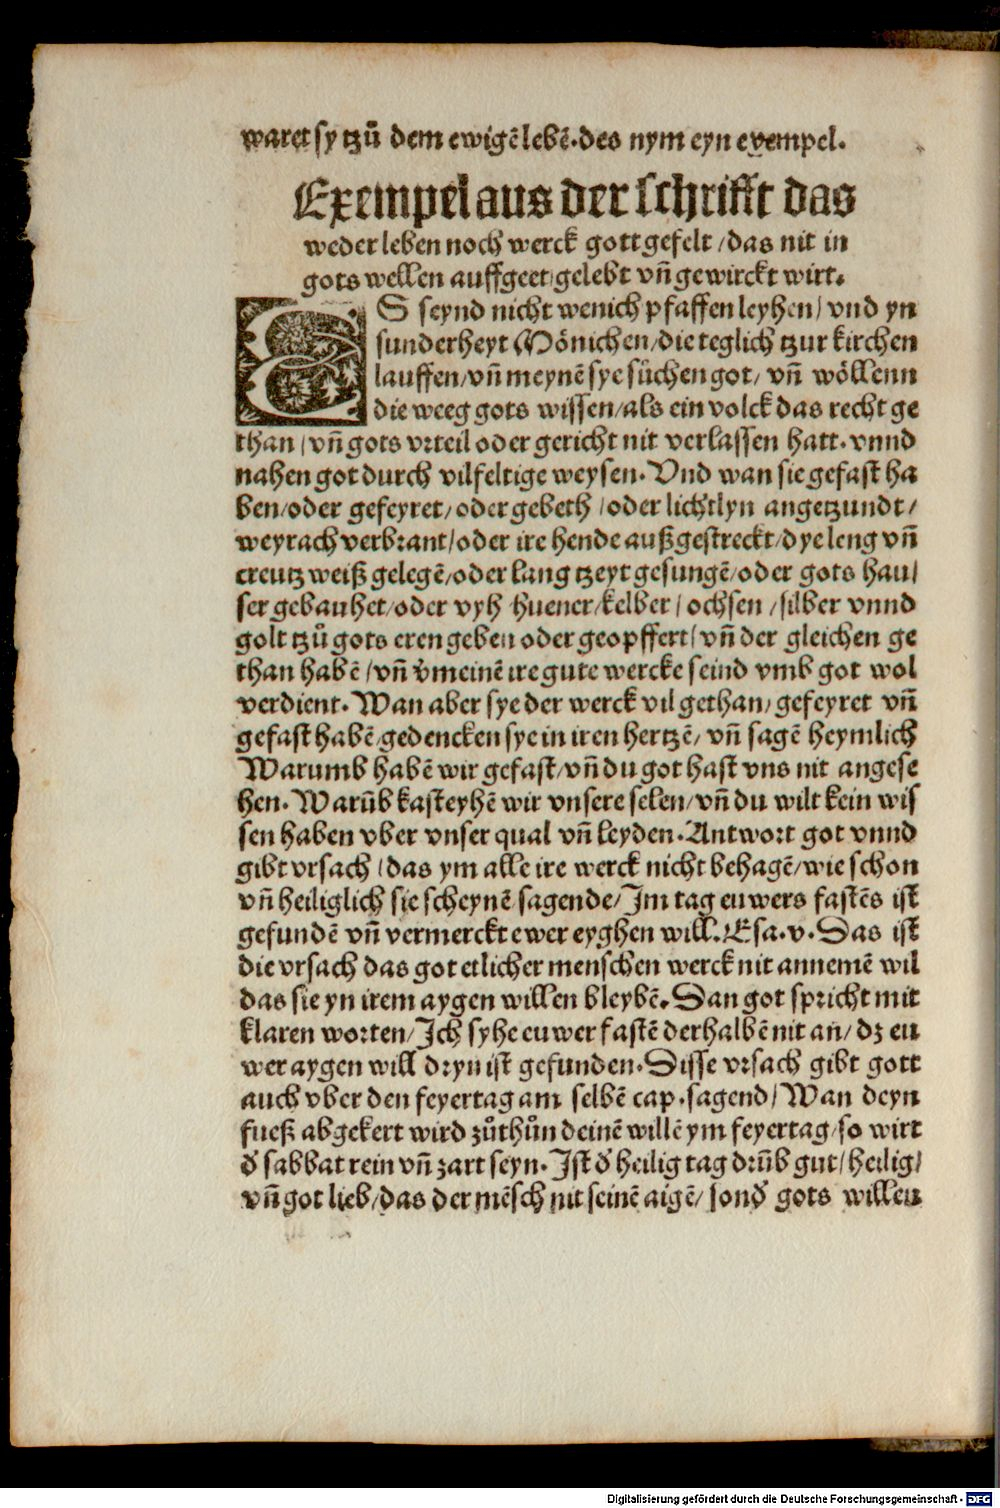 waret sy tzů dem ewigē lebē. des nym eyn exempel.
Exempel aus der schrifft das
weder leben noch werck gott gefelt / das nit in
gots wellen auffgeet / gelebt vñ gewirckt wirt.
ES seynd nicht wenich pfaffen leyhen / vnd yn
sunderheyt Mönichen / die teglich tzur kirchen
lauffen / vñ meynē sye sůchen got / vñ wöllenn
die weeg gots wissen / als ein volck das recht ge
than / vñ gots vrteil oder gericht nit verlassen hatt. vnnd
nahen got durch vilfeltige weysen. Vnd wan sie gefast ha
ben / oder gefeyret / oder gebeth / oder lichtlyn angetzundt /
weyrach verbrant / oder ire hende außgestreckt / dye leng vñ
creutz weiß gelegē / oder lang tzeyt gesungē / oder gots hau /
ser gebauhet / oder vyh huener / kelber / ochsen / silber vnnd
golt tzů gots eren geben oder geopffert / vñ der gleichen ge
than habē / vñ v̄meinē ire gute wercke seind vmb got wol
verdient. Wan aber sye der werck vil gethan / gefeyret vñ
gefast habē / gedencken sye in iren hertzē / vñ sagē heymlich
Warumb habē wir gefast / vñ du got hast vns nit angese
hen. Warūb kasteyhē wir vnsere selen / vñ du wilt kein wis
sen haben vber vnser qual vñ leyden. Antwort got vnnd
gibt vrsach / das ym alle ire werck nicht behagē / wie schon
vñ heiliglich sie scheynē sagende / Im tag euwers fastēs ist
gefundē vñ vermerckt ewer eyghen will. Esa. v. Das ist
die vrsach das got etlicher menschen werck nit annemē wil
das sie yn irem aygen willen bleybē. Dan got spricht mit
klaren worten / Ich syhe euwer fastē derhalbē nit an / dz eu
wer aygen will dryn ist gefunden. Disse vrsach gibt gott
auch vber den feyertag am selbē cap. sagend / Wan deyn
fueß abgekert wird zůthůn deinē willē ym feyertag / so wirt
d̄ sabbat rein vñ zart seyn. Ist d̄ heilig tag drūb gut / heilig /
vñ got lieb / das der mēsch nit seinē aigē / sond̄ gots willen
Digitalisierung gefördert durch die Deutsche Forschungsgemeinschaft - DFG